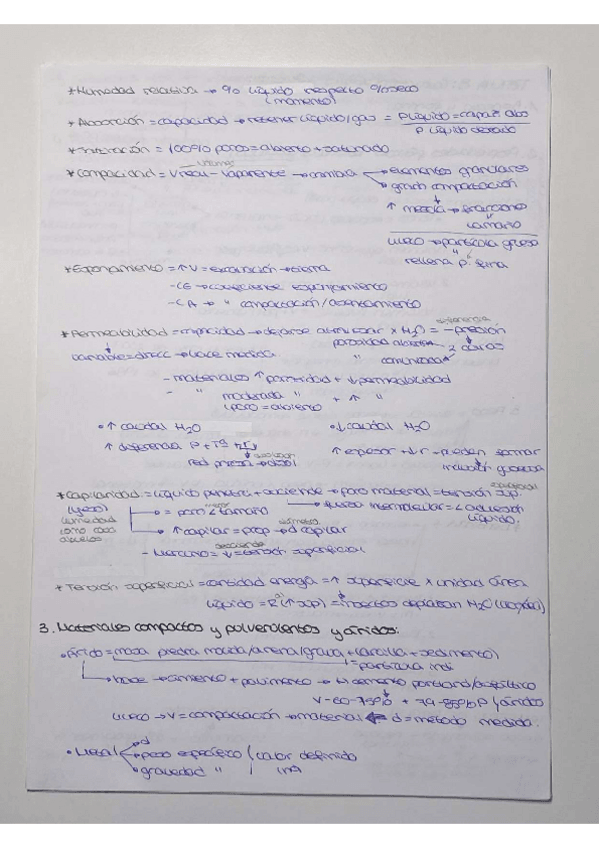 * Humedad relativa → % líquido respecto % seco
(momento)
* Absorción = capacidad → retener líquido/gas = P líquido = capaz abs
P líquido
* = 100% poros = abierto + saturado
volumen
* Compacidad = V real - V aparente → cambia → elementos granulares
→ grado compactación
↑ mezcla → fracciones
tamaño
hueco → partícula gruesa
rellena p. fina
* Esponjamiento = ↑ V = excavación → tierra
- CE → coeficiente esponjamiento
- CA → " compactación/asentamiento
* Permeabilidad = capacidad → dejarse atravesar x H2O = - presión
diferencia
porosidad abierta - 2 caras
variable = direcc → hace medida " comunicada
- materiales ↑ porosidad + ↓ permeabilidad
- " moderada " + ↑ "
poro = abierto
• ↑ caudal H2O • ↓ caudal H2O
↑ diferencia P + Tª
↑ espesor + ↓ r → pueden formar
red
* Capilaridad = líquido penetra + asciende → poro material = tensión sup.
superficial
(yeso) → = poro < tamaño → fuerza intermolecular = < adhesión
líquido.
humedad
como casa
abuelos
→ ↑ capilar = prop → d capilar
diámetro
desciende
- Mercurio = ↓ = tensión superficial
* Tensión superficial = cantidad energía = ↑ superficie x unidad área
líquido = R (↑ sup) = insectos desplazan H2O
3. Materiales compactos y pulverulentos y áridos:
• Árido = masa piedra molida/arena/grava + (arcilla + sedimento)
= partícula indi.
→ base → cimiento + pavimento → H cemento portland/asfáltico
V - 60-75% + 79-85% P áridos
hueco → V = compactación → material d = método medida.
• d
• peso específico valor definido
• gravedad "